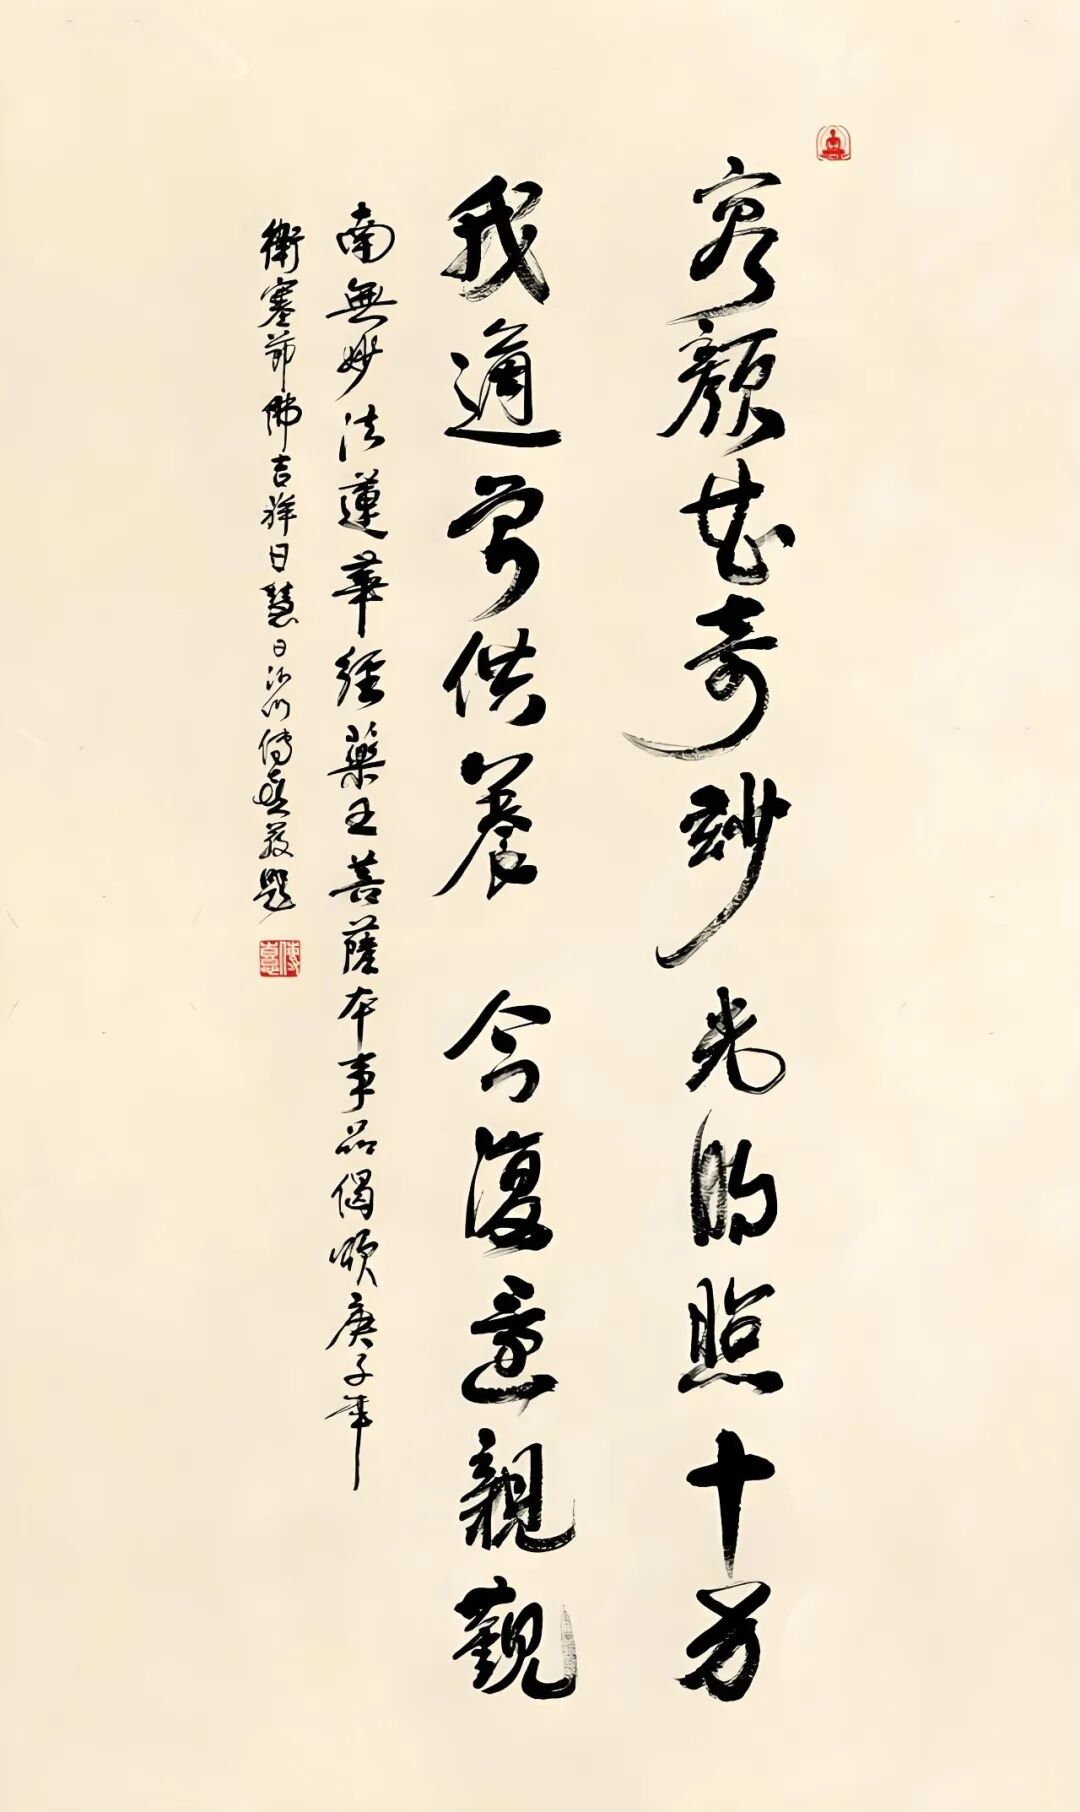 容顏甚奇妙光明照十方
我適曾供養 今復還親覲
南無妙法蓮華經藥王菩薩本事品偈頌庚子年
衛塞節佛吉祥日慧日沙門傳喜敬題
傳憙